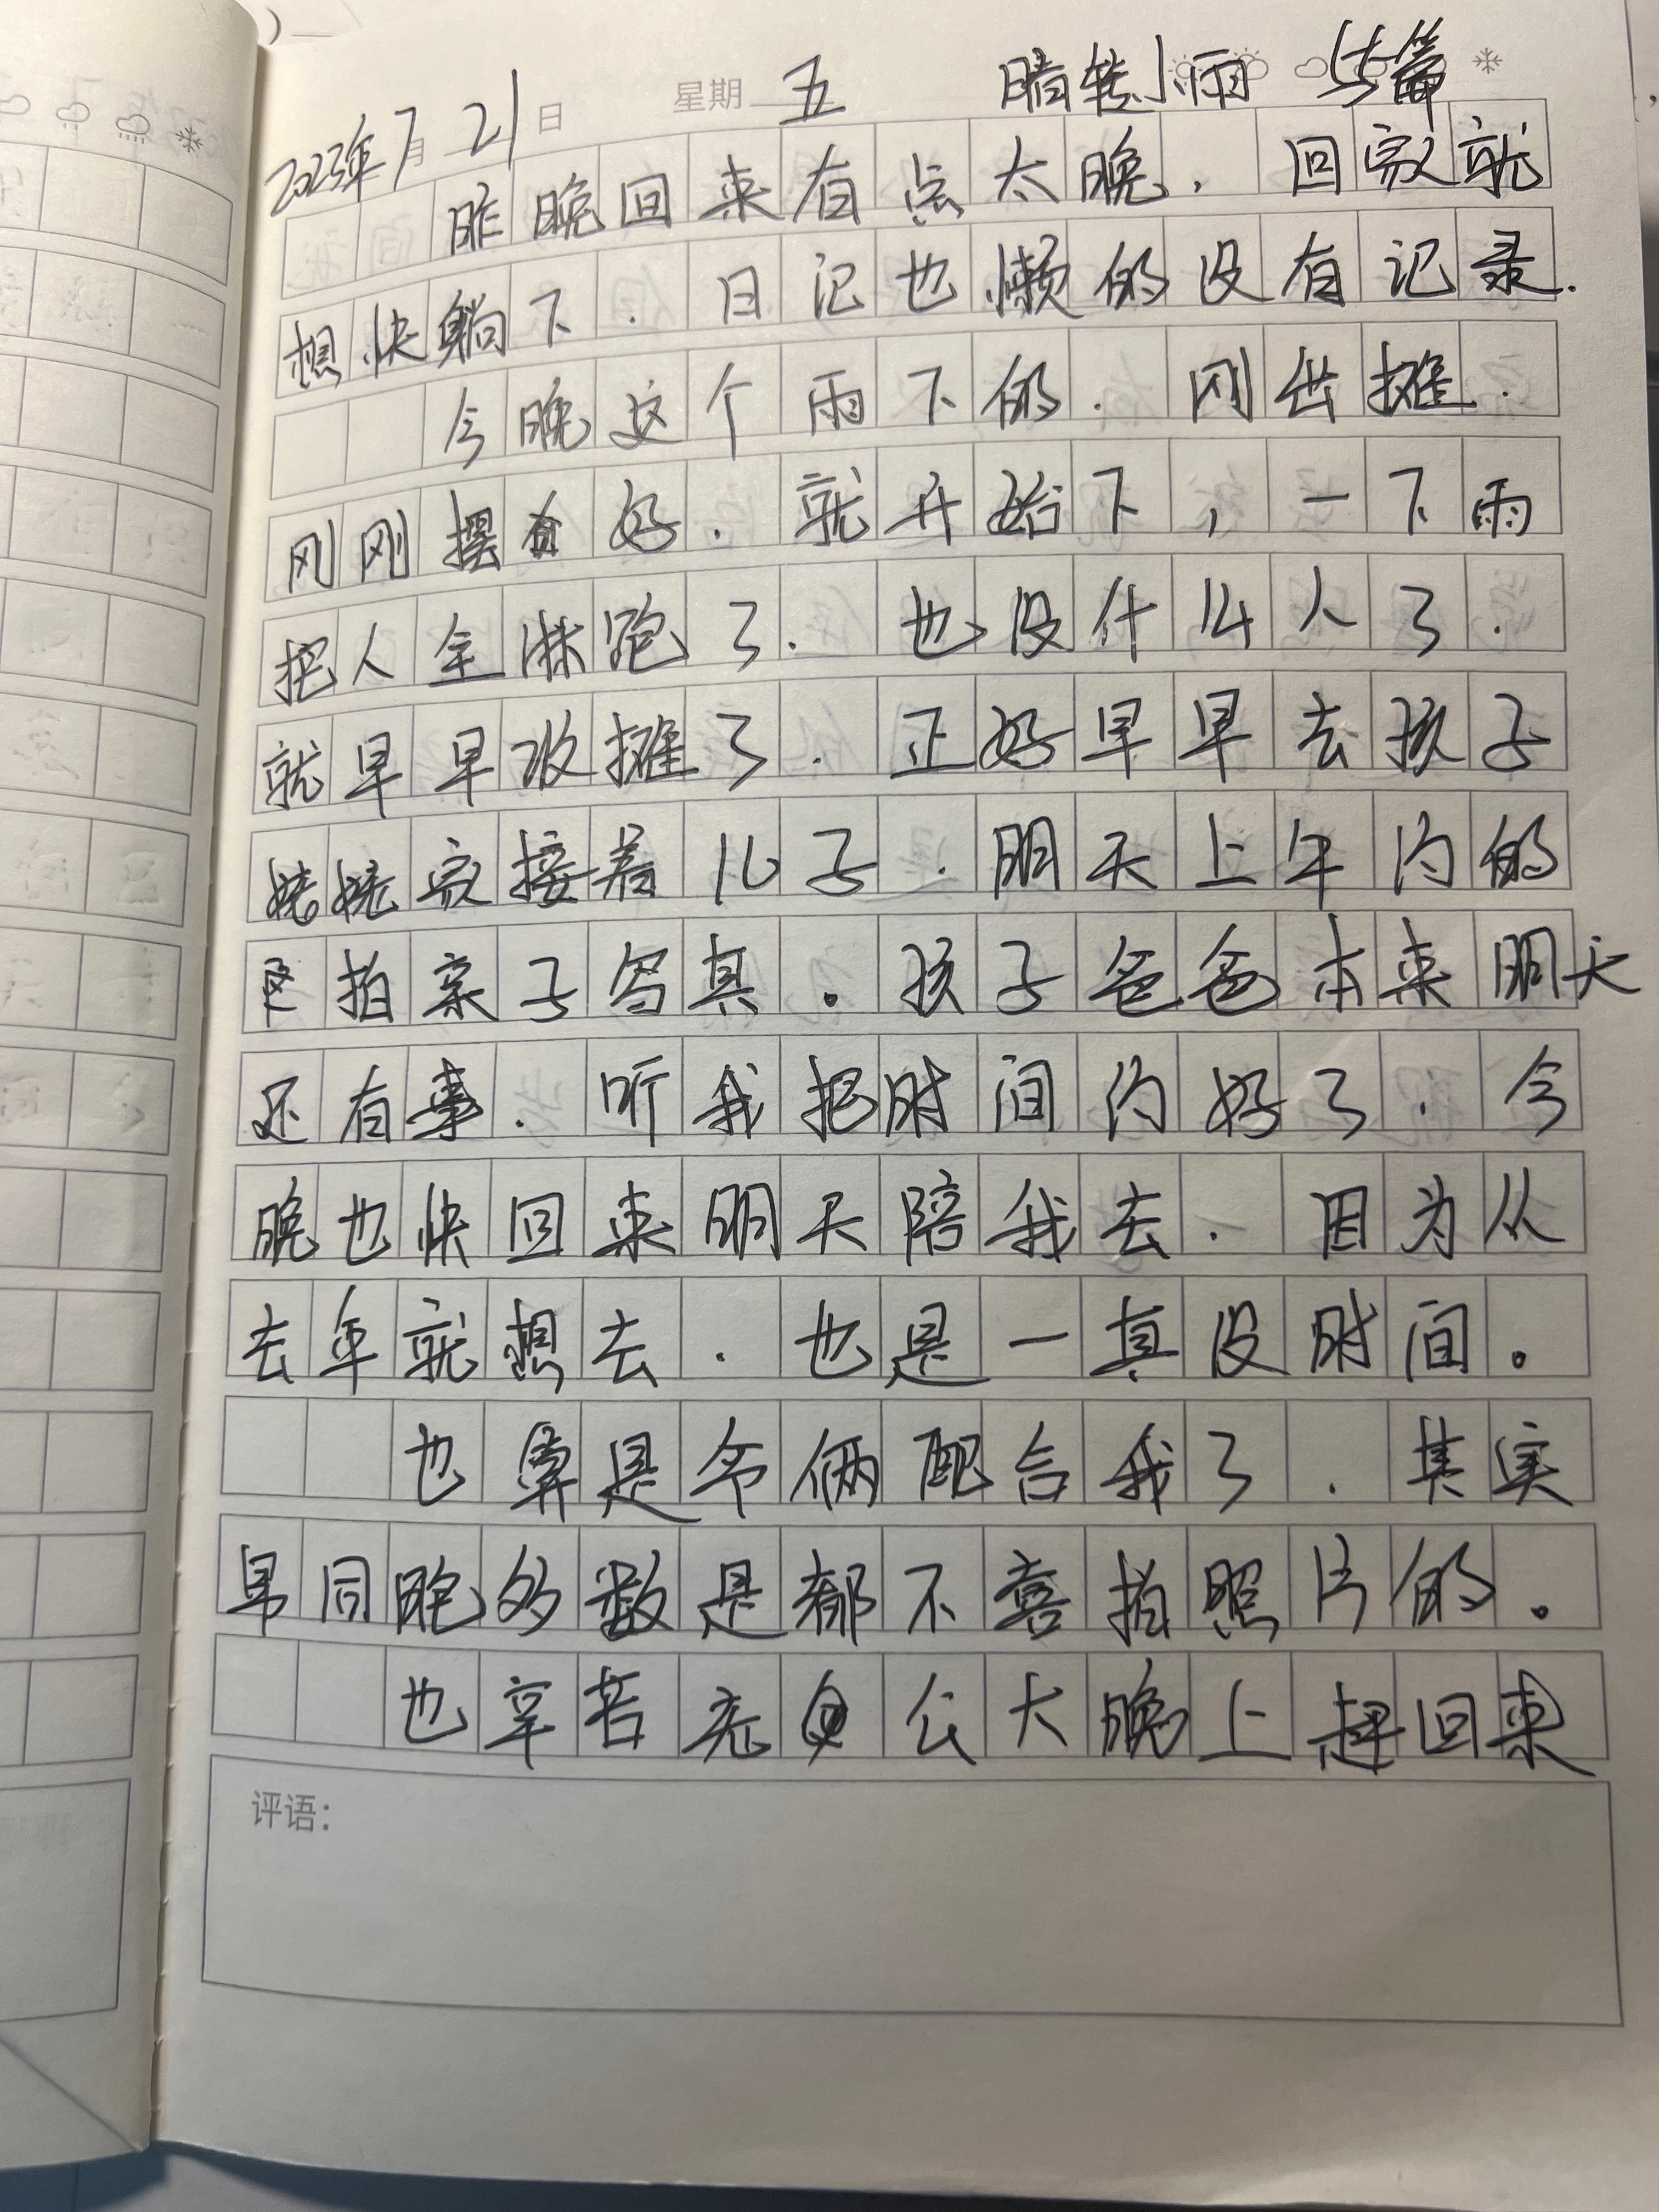 2023年7月21日 星期五 晴转小雨 55篇
昨晚回来有点太晚，回家就
想快躺下．日记也懒的没有记录．
今晚这个雨下的．刚出摊．
刚刚摆好．就开始下，一下雨
把人全淋跑了．也没什么人了．
就早早收摊了．正好早早去孩子
姥姥家接着儿子．明天上午约的
拍亲子写真。孩子爸爸本来明天
还有事．听我把时间约好了．今
晚也快回来明天陪我去．因为从
去年就想去．也是一直没时间。
也算是爷俩配合我了．其实
男同胞多数是都不喜拍照片的。
也辛苦老公大晚上赶回来
评语：